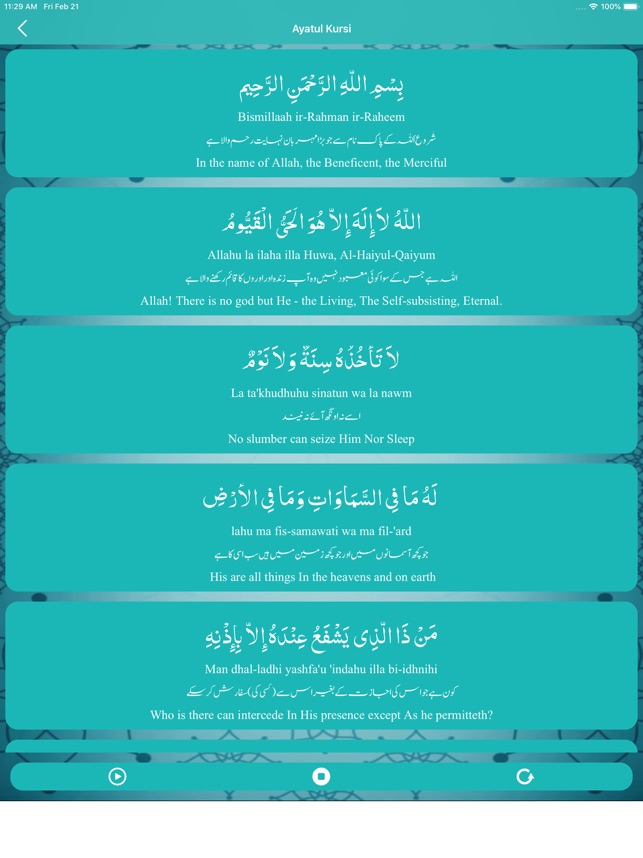 11:29 AM Fri Feb 21
100%
Ayatul Kursi
بِسْمِ اللّهِ الرَّحْمَنِ الرَّحِيمِ
Bismillaah ir-Rahman ir-Raheem
شروع اللہ کے پاک نام سے جو بڑا مہربان نہایت رحم والا ہے
In the name of Allah, the Beneficent, the Merciful
اللّهُ لاَ إِلَهَ إِلاَّ هُوَ الْحَيُّ الْقَيُّومُ
Allahu la ilaha illa Huwa, Al-Haiyul-Qaiyum
اللہ ہے جس کے سوا کوئی معبود نہیں وہ آپ زندہ اور اوروں کا قائم رکھنے والا ہے
Allah! There is no god but He - the Living, The Self-subsisting, Eternal.
لاَ تَأْخُذُهُ سِنَةٌ وَلاَ نَوْمٌ
La ta'khudhuhu sinatun wa la nawm
اسے نہ اونگھ آئے نہ نیند
No slumber can seize Him Nor Sleep
لَهُ مَا فِي السَّمَاوَاتِ وَمَا فِي الأَرْضِ
lahu ma fis-samawati wa ma fil-'ard
جو کچھ آسمانوں میں اور جو کچھ زمین میں ہیں سب اسی کا ہے
His are all things In the heavens and on earth
مَنْ ذَا الَّذِي يَشْفَعُ عِنْدَهُ إِلاَّ بِإِذْنِهِ
Man dhal-ladhi yashfa'u 'indahu illa bi-idhnihi
کون ہے جو اس کی اجازت کے بغیر اس سے (کسی کی) سفارش کر سکے
Who is there can intercede In His presence except As he permitteth?